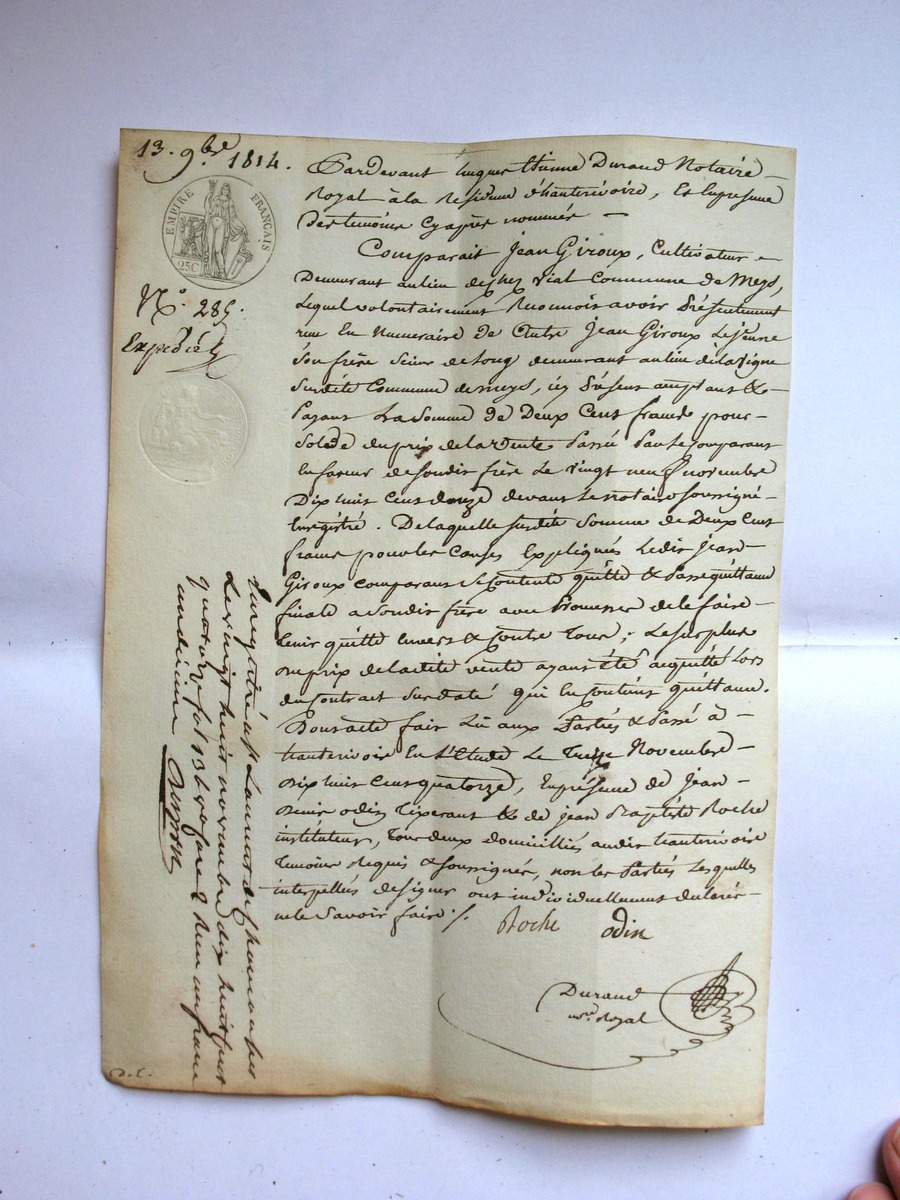 13. 9.bre 1814.
EMPIRE FRANÇAIS
25C
N.o 285.
Expédié
Pardevant hugues Etienne Durand Notaire
Royal à la Residence d'hauterivoire, En la presence
Des temoins Cy après nommés
Comparait Jean Giroux, Cultivateur
Demeurant au lieu de chez Vial Commune de Meys,
Lequel volontairement Reconnois avoir Présentement
reçu En Numeraire de Jean Giroux Le jeune
Son frère de long demeurant au lieu de la Vigne
Susdite Commune de meys, icy Présent acceptant &
Payant La Somme de Deux Cent francs pour
Solde du prix de la Vente Passée Par Le Comparant
En faveur de Sondit frère Le Vingt neuf novembre
Dix huit Cent douze devant Le notaire Soussigné
Enregistré. De laquelle Susdite Somme de Deux Cent
francs pour les Causes Expliquées Ledit Jean
Giroux comparant Se Contente quitte & Passe quittance
finale a Sondit frère avec Promesse de le faire
tenir quitte Envers & Contre Tous; Le Surplus
du prix de ladite vente ayant été acquitté Lors
du Contrat Susdaté qui En Contient quittance.
Dont acte fait Lû aux Parties & Passé à
hauterivoire En L'Etude Le Treize Novembre
dix huit Cent quatorze, En presence de jean
odin Tixerant & de jean Baptiste Roche
instituteur, Tous deux domiciliés audit hauterivoire
Temoins Requis & Soussignés, non les Parties Lesquelles
interpellés de signer ont individuellement déclaré
ne le Savoir faire ./.
Roche odin
Durand
no.re Royal
Enregistré à St Laurent de Chamousset
Le vingt huit novembre dix huit cent
quatorze fol 136 Reçu un franc
un dixième
D.C.